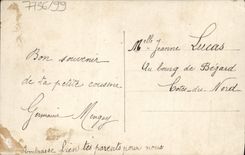 7756/99
Bon souvenir
de ta petite cousine
Germaine
Melle Jeanne Lucas
Au bourg de Bégard
Côtes-du-Nord
Embrasse bien tes parents pour nous